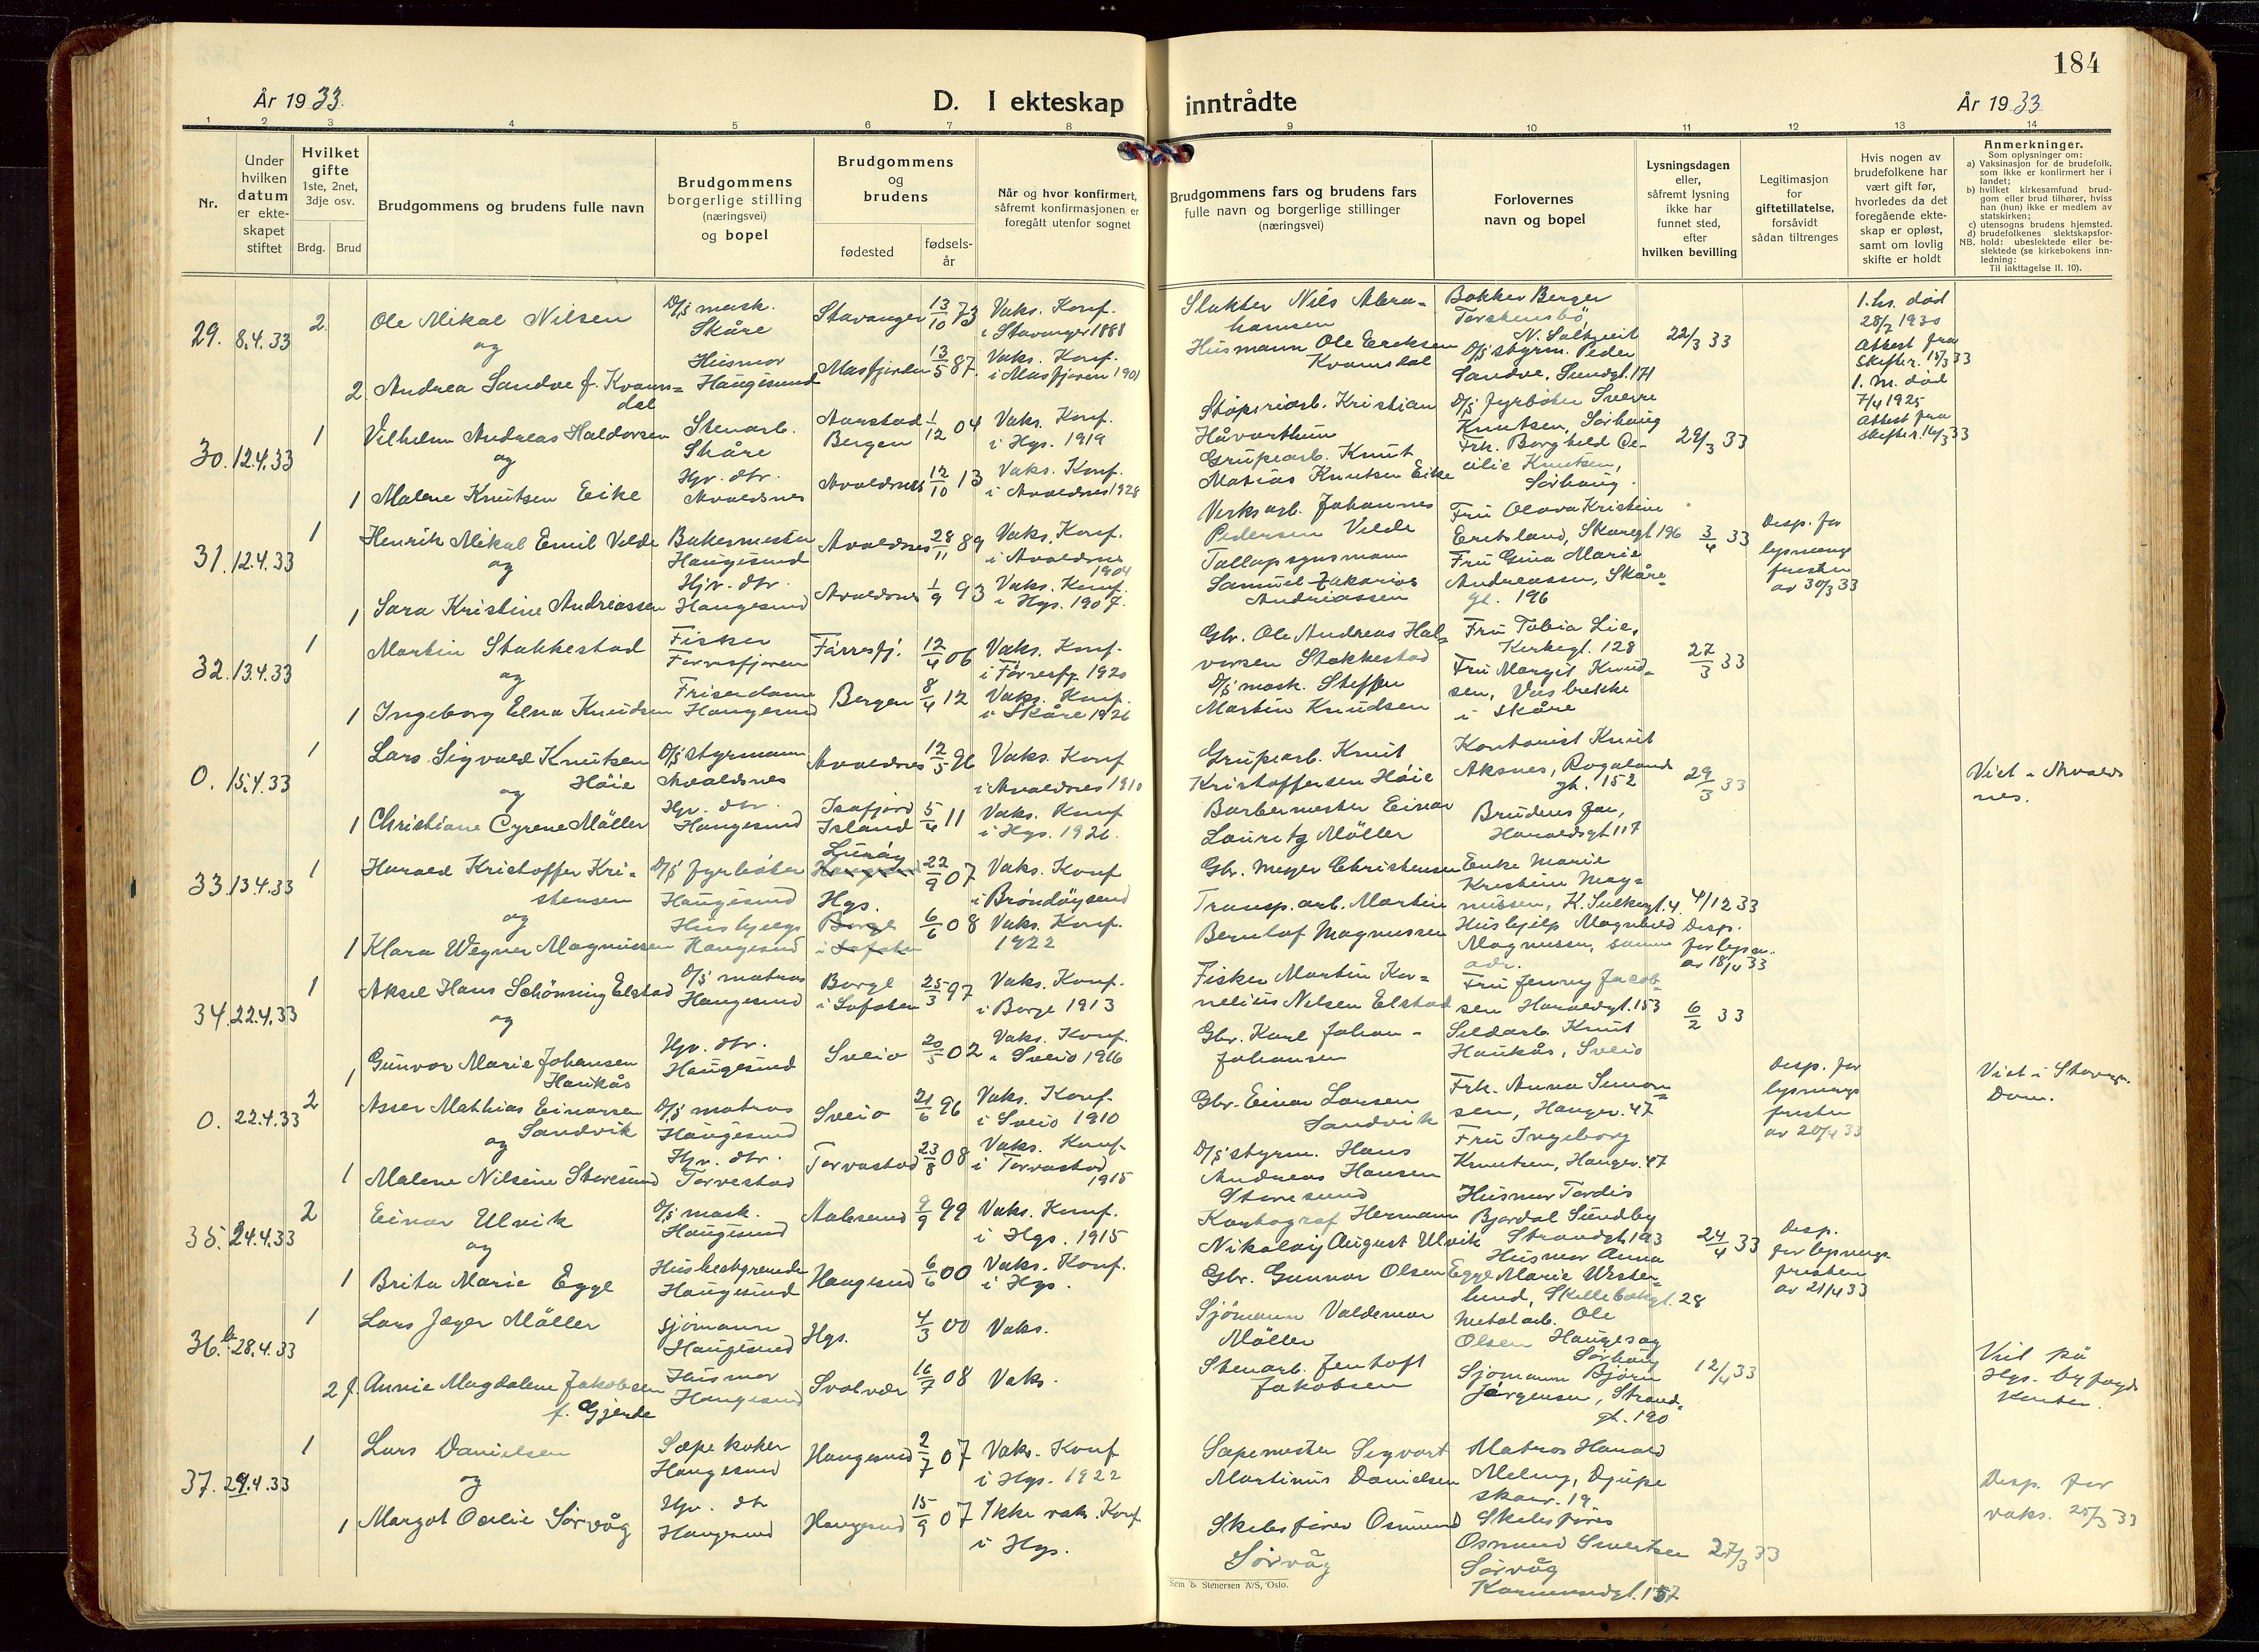 184
År 1933
D. I ekteskap inntrådte
År 1933
1 2 3 4 5 6 7 8 9 10 11 12 13 14
Nr.
Under hvilken datum er ekte- skapet stiftet
Hvilket gifte 1ste, 2net, 3dje osv.
Brdg. Brud
Brudgommens og brudens fulle navn
Brudgommens borgerlige stilling (næringsvei) og bopel
Brudgommens og brudens
fødested
fødsels- år
Når og hvor konfirmert, såfremt konfirmasjonen er foregått utenfor sognet
Brudgommens fars og brudens fars fulle navn og borgerlige stillinger (næringsvei)
Forlovernes navn og bopel
Lysningsdagen eller, såfremt lysning ikke har funnet sted, efter hvilken bevilling
Legitimasjon for giftetillatelse, forsåvidt sådan tiltrenges
Hvis nogen av brudefolkene har vært gift før, hvorledes da det foregående ekte- skap er opløst, samt om lovlig skifte er holdt
Anmerkninger.
Som oplysninger om:
a) Vaksinasjon for de brudefolk, som ikke er konfirmert her i landet;
b) hvilket kirkesamfund brud- gom eller brud tilhører, hviss han (hun) ikke er medlem av statskirken;
c) utensogns brudens hjemsted.
d) brudefolkenes slektskapsfor- NB. hold: ubeslektede eller be- slektede (se kirkebokens inn- ledning: Til iakttagelse II. 10).
29. 8.4.33
2
Ole Mikal Nilsen
og
2 Andrea Sandve f. Kvams=
dal
D/s mask.
Skåre
Husmor
Haugesund
Stavanger 13/10 73
Masfjorden 13/5 87
Vaks. Konf.
i Stavanger 1888
Vaks. Konf.
i Masfjoren 1901
Slakter Nils Abra=
hamsen
Husmann Ole Ericksen
Kvamsdal
Bakker Berger
Torstensbö
D/s styrm. Peder
Sandve, Sundgt. 171
22/3 33
1. hs. död
28/7 1930
Attest fra
Skifter. 15/3 33
1. m. död
7/4 1925
Attest fra
Skifter. 16/3 33
30. 12.4.33
1
Vilhelm Andreas Haldorsen
og
1 Malene Knutsen Eike
Stenarb.
Skåre
Hjv. dtr.
Avaldsnes
Aarstad
Bergen 1/12 04
Avaldsnes 12/10 13
Vaks. Konf.
i Hgs. 1919
Vaks. Konf.
i Avaldsnes 1928
Støperiarb. Kristian
Håvarthun
Grubearb. Knut
Matias Knutsen Eike
D/s fyrböter Sverre
Knutsen, Sörhaug
Frk. Borghild Ce-
cilie Knutsen,
Sörhaug.
29/3 33
31. 12.4.33
1
Henrik Mikal Emil Velde
og
1 Sara Kristine Andreassen
Bakermester
Haugesund
Hjv. dtr.
Haugesund
Avaldsnes 28/11 89
Avaldsnes 1/9 93
Vaks. Konf.
i Avaldsnes
1904
Vaks. Konf.
i Hgs. 1907.
Verksarb. Johannes
Pedersen Velde
Tallopsynsmann
Samuel Zakarias
Andreassen
Fru Olava Kristine
Eriksland, Skåregt 196
Fru Gina Marie
Andreassen, Skåre-
gt. 196
3/4 33
Desp. for
lysnings
fristen
av 30/3 33
32. 13.4.33
1
Martin Stakkestad
og
1 Ingeborg Elna Knudsen
Fisker
Førresfjoren
Frisørdame
Haugesund
Førresfj. 12/4 06
Bergen 8/4 12
Vaks. Konf.
i Førresfj. 1920
Vaks. Konf.
i Skåre 1926
Gbr. Ole Andreas Hal=
vorsen Stakkestad
D/s mask. Steffen
Martin Knudsen
Fru Tobia Lie,
Kirkegt. 128
Fru Margit Knud=
sen, Vasbrekke
i Skåre
27/3 33
0. 15.4.33
1
Lars Sigvald Knutsen
og Höie
1 Christiane Cyrene Möller
D/s styrmann
Avaldsnes
Hjv. dtr.
Haugesund
Avaldsnes 12/5 96
Isafjord
Island 5/4 11
Vaks. Konf
i Avaldsnes 1910
Vaks. Konf
i Hgs. 1926.
Grubearb. Knut
Kristoffersen Höie
Barbermester Einar
Lauritz Möller
Kontorist Knut
Aksnes, Rogaland
gt. 152
Brudens far,
Haraldsgt 117
29/3 33
Viet i Avalds
nes.
33. 13.4.33
1
Harald Kristoffer Kri=
stensen
og
1 Klara Wegner Magnussen
D/s fyrböter
Haugesund
Hushjelp
Haugesund
Luröy
22/9 07
Hgs.
Borge
i Lofoten
6/6 08
Vaks. Konf
i Bröndöysund
Vaks. Konf.
1922
Gbr. Meyer Christensen
Transp. arb. Martin
Berntof Magnussen
Enke Marie
Kristine Mag=
nussen, K. Sulkegt. 4.
Hushjelp Magnhild
Magnussen, samme
adr.
4/12 33
Desp.
for lysn.
av 18/4 33
34. 22.4.33
1
Aksel Hans Schönning Elstad
og
1 Gunvor Marie Johansen
Haukås
D/s matros
Haugesund
Hjv. dtr.
Haugesund
Borge
i Lofoten 25/3 97
Sveio 20/5 02
Vaks. Konf.
i Borge 1913
Vaks. Konf.
i Sveio 1916
Fisker Martin Kor=
nelius Nilsen Elstad
Gbr. Karl Johan
Johansen
Fru Jenny Jacob-
sen Haraldsgt. 153
Sildarb. Knut
Haukås, Sveio
6/2 33
0. 22.4.33
2
Asser Mathias Einarsen
og Sandvik
1 Malene Nilsine Storesund
D/s matros
Haugesund
Hjv. dtr.
Torvestad
Sveio 21/6 96
Torvastad 23/8 08
Vaks. Konf.
i Sveio 1910
Vaks. Konf.
i Torvastad
1915
Gbr. Einar Larsen
Sandvik
D/s styrm. Hans
Andreas Hansen
Storesund
Frk. Anna Simon=
sen, Haugev. 47
Fru Ingeborg
Knutsen, Haugev. 47
Desp. for
lysnings
fristen
av 20/4 33
Viet i Stavgr.
Dom.
35. 24.4.33
2
Einar Ulvik
og
1 Brita Marie Egge
D/s mask.
Haugesund
Husbestyrende
Haugesund
Aalesund 9/9 99
Haugesund 6/6 00
Vaks. Konf.
i Hgs. 1915
Vaks. Konf.
i Hgs.
Kartograf Hermann
Nikolay August Ulvik
Gbr. Gunnar Olsen Egge
Husmor Tordis
Bjordal Sundby
Strandgt. 193
Husmor Anna
Marie Wester=
lund, Skillebekgt. 28
24/4 33
Desp.
for lysnings
fristen
av 21/4 33
36. b 28.4.33
1
Lars Jæger Möller
2 f. Annie Magdalene Jakobsen
f. Gjerde
Sjömann
Haugesund
Husmor
Haugesund
Hgs. 4/3 00
Svolvær 16/7 08
Vaks.
Vaks.
Sjömann Valdemar
Möller
Stenarb. Jentoft
Jakobsen
Metalarb. Ole
Olsen Haugesag
Sörhaug
Sjömann Björn
Jörgensen, Strand=
gt. 190
12/4 33
Viet på
Hgs. byfogd
kontor.
37. 29.4.33
1
Lars Danielsen
og
1 Margot Oc­ilie Sørvåg
Sæpekoker
Haugesund
Hjv. dtr
Haugesund
Haugesund 2/7 07
Haugesund 15/9 07
Vaks. Konf
i Hgs. 1922
Ikke vaks. Konf
i Hgs.
Sæpemester Sigvart
Martinus Danielsen
Skibsfører Osmund
Sørvåg
Matros Harald
Melny, Djupe
skarv. 19
Skibsfører
Osmund Sivertsen
Sørvåg
Karmsundgt. 157
27/3 33
Desp. for
vaks. 25/3 33
Sem & Stenersen A/S, Oslo.